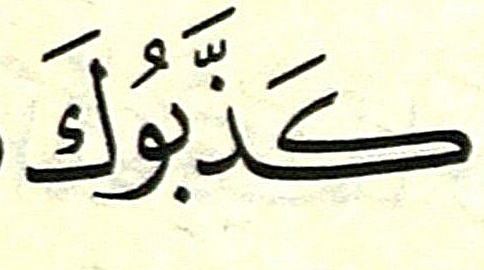 كَذَّبُوكَ